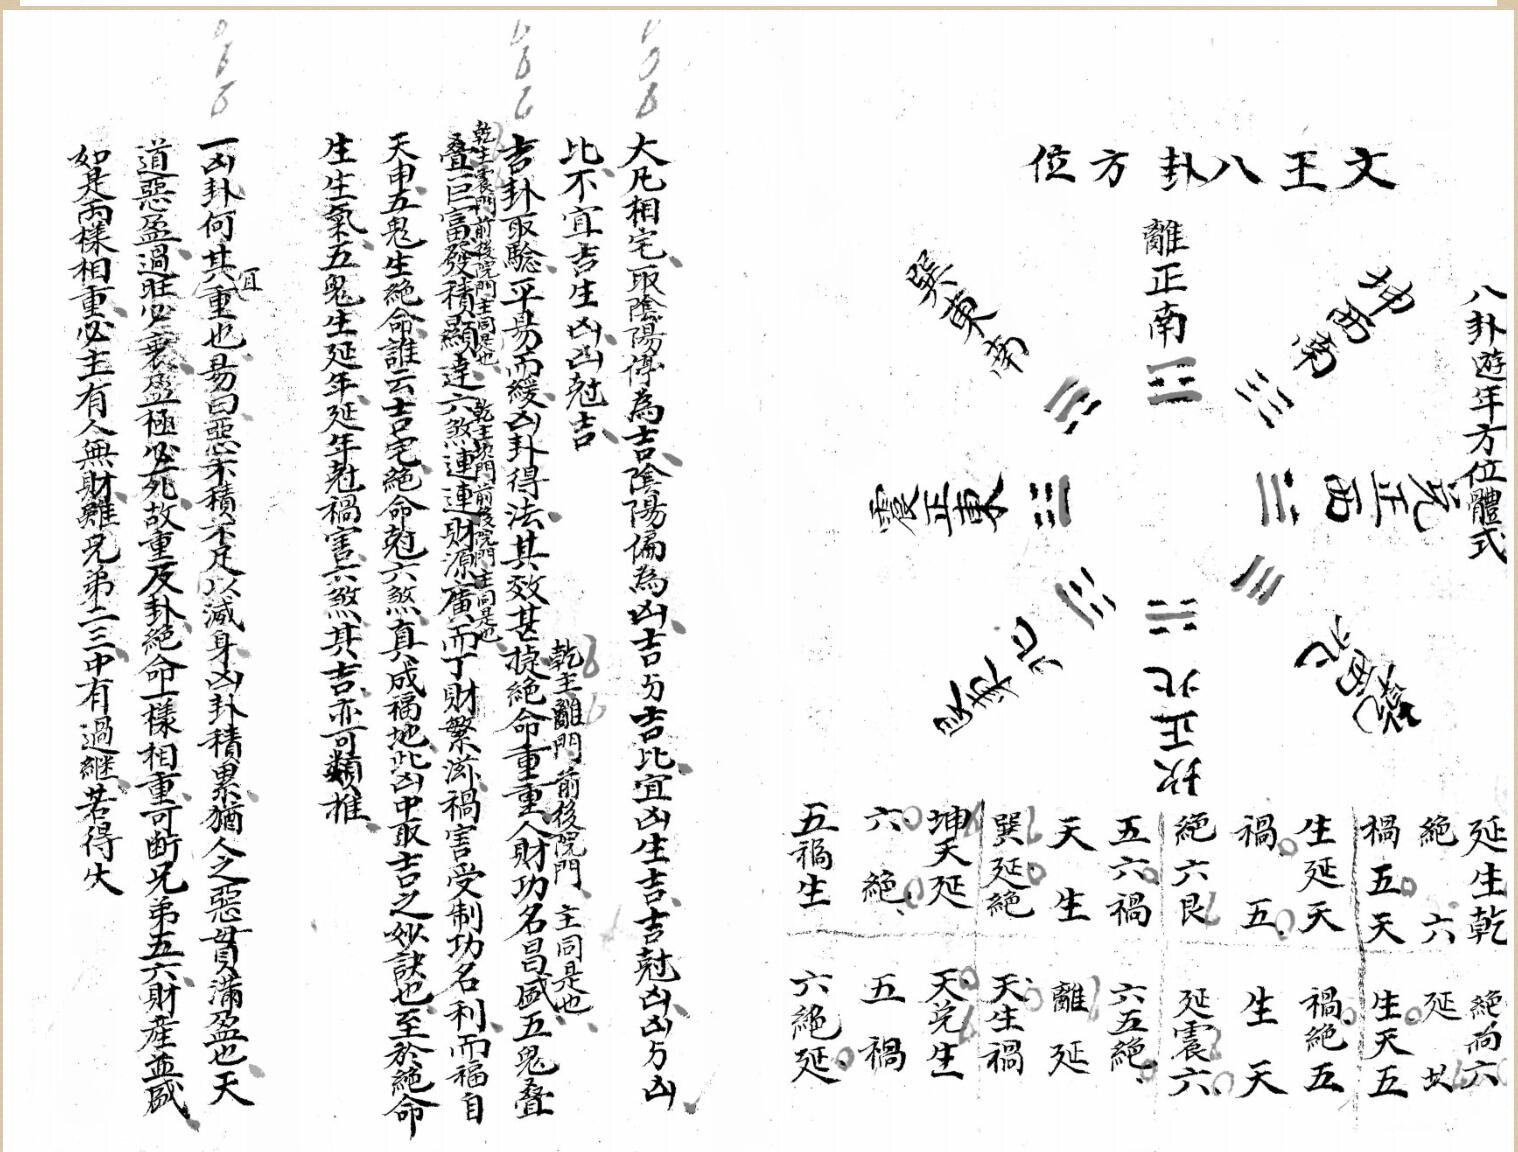 文王八卦方位
八卦遊年方位體式
離正南
坤西南
兌正西
乾西北
坎正北
艮東北
震正東
巽東南
延生乾
絕 六
禍五天
生延天
禍 五
絕六艮
五六禍
天 生
巽延絕
坤天延
六 絕
五禍生
絕尚六
延 坎
生天五
禍絕五
生 天
延震六
六五絕
離 延
天生禍
天兌生
五 禍
六絕延
大凡相宅取陰陽停為吉陰陽偏為凶吉与吉比宜凶生吉吉尅凶凶与凶
比不宜吉生凶凶尅吉
乾主離門前後院門主同是也
吉卦取驗平易而緩凶卦得法其效甚捷絕命重重人財功名昌盛五鬼叠
乾主震門前後院門主同是也
乾主坎門前後院門主同是也
叠巨富發積顯達六煞連連財源廣而丁財繁衍禍害受制功名利而福自
天申五鬼生絕命誰云吉宅絕命尅六煞真成福地此凶中取吉之妙訣也至於絕命
生生氣五鬼生延年延年尅禍害六煞其吉亦可類推
一凶卦何其宜重也易曰惡不積不足以滅身凶卦積累猶人之惡貫滿盈也天
道惡盈過旺必衰盈極必死故重及卦絕命一樣相重可断兄弟五六財產並盛
如是兩樣相重必主有人無財雖兄弟二三中有過継若得失